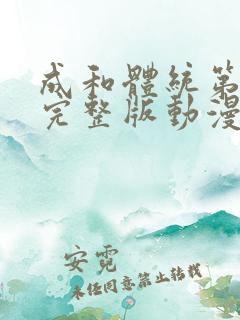 成和體統第
完整版動漫
安霓
未任同意禁止转载